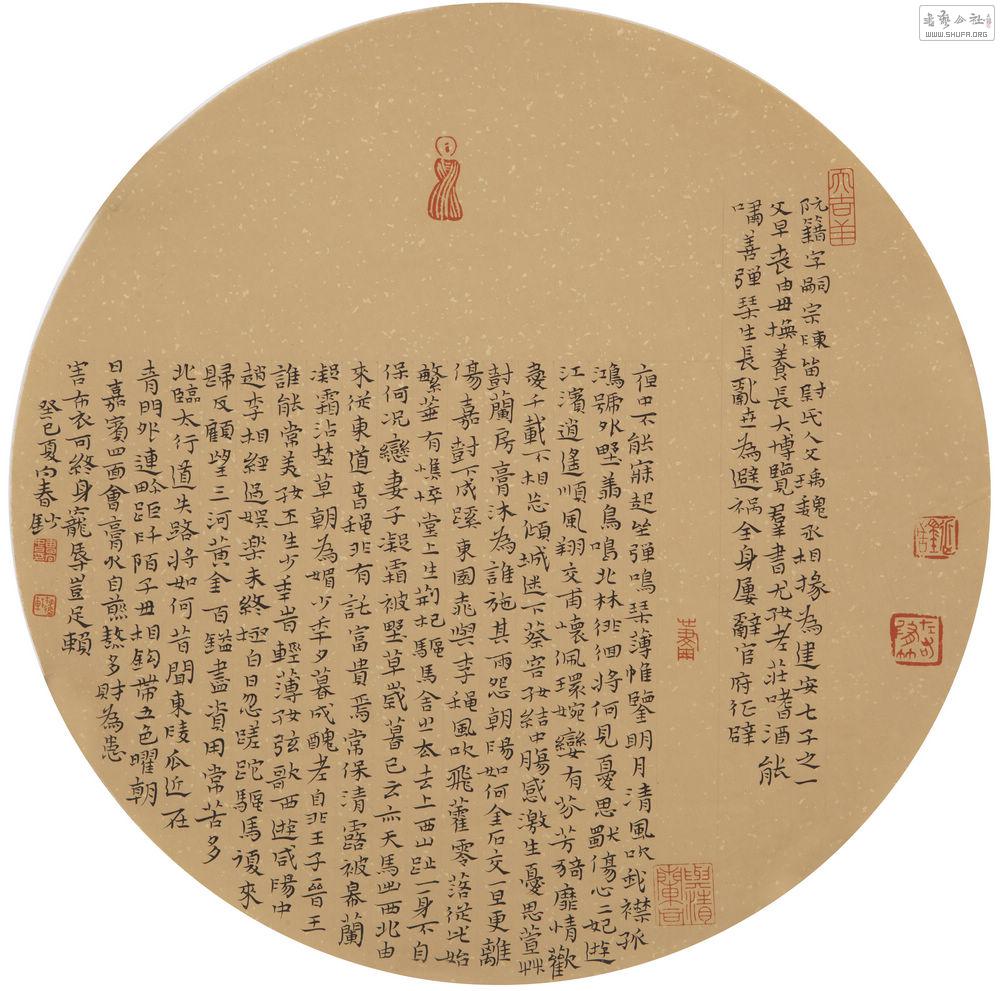 阮籍字嗣宗陳留尉氏人父瑀魏丞相掾為建安七子之一
父早喪由母撫養長大博覽羣書尤好老莊嗜酒能
嘯善彈琴生長亂世為避禍全身屢辭官府征辟
夜中不能寐起坐彈鳴琴薄帷鑒明月清風吹我襟孤
鴻號外野翔鳥鳴北林徘徊將何見憂思獨傷心二妃遊
江濱逍遙順風翔交甫懷佩環婉孌有芬芳猗靡情歡
愛千載不相忘傾城迷下蔡容好結中腸感激生憂思萱草
樹蘭房膏沐為誰施其雨怨朝陽如何金石交一旦更離
傷嘉樹下成蹊東園桃與李秋風吹飛藿零落從此始
繁華有憔悴堂上生荊杞驅馬舍之去去上西山趾一身不自
保何況戀妻子凝霜被野草歲暮已云亦天馬出西北由
來從東道春秋非有託富貴焉常保清露被皋蘭
凝霜沾野草朝為媚少年夕暮成醜老自非王子晉王
誰能常美好平生少年時輕薄好弦歌西遊咸陽中
趙李相經過娛樂未終極白日忽蹉跎驅馬復來
歸反顧望三河黃金百鎰盡資用常苦多
北臨太行道失路將如何昔聞東陵瓜近在
青門外連畛距阡陌子母相鉤帶五色曜朝
日嘉賓四面會膏火自煎熬多財為患
害布衣可終身寵辱豈足賴
癸巳夏向春鈔
大吉羊
WWW.SHUFA.ORG